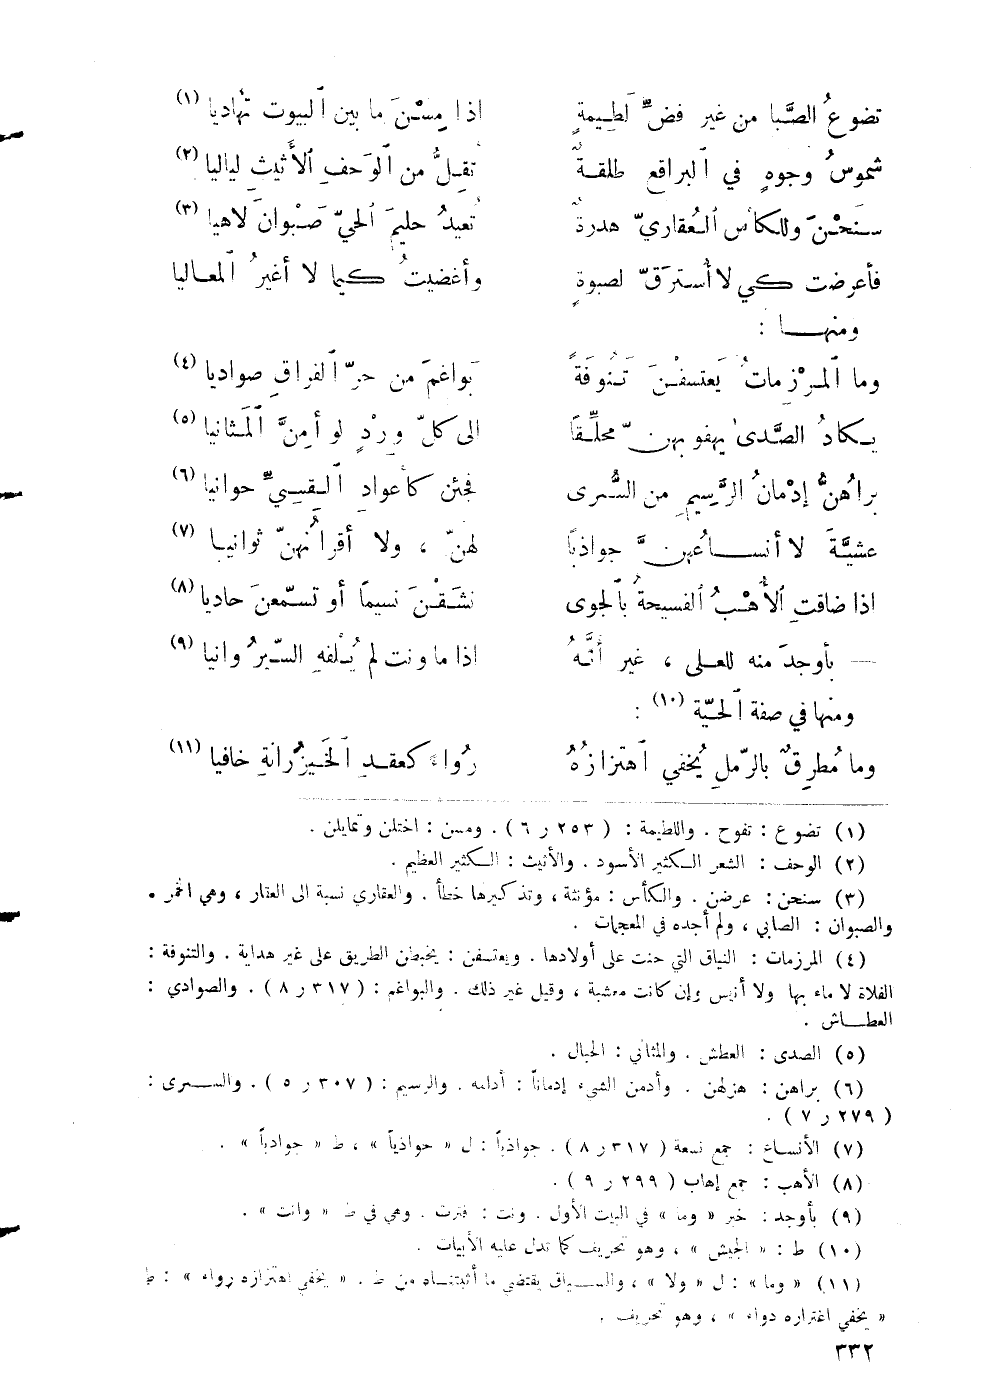 تضوعُ الصَّبا من غير فضِّ لَطِيمةٍ اذا مِسْنَ ما بين ٱلبيوت تهاديا (١)
شموسُ وجوهٍ في ٱلبراقع طلقةٌ تُقِلُّ من ٱلوَحفِ ٱلأَثيثِ لياليا (٢)
سَنَحْنَ وللكأس ٱلعُقاريّ هدرةٌ تُعيدُ حليمَ ٱلحيّ صَبْوانَ لاهيا (٣)
فأعرضت كي لا أُسترَقّ لصبوةٍ وأغضيتُ كيما لا أغيرُ ٱلمعاليا
ومنها :
وما ٱلمرْزِماتُ يَعتسفْنَ تَنُوفَةً بَواغمَ من حرّ ٱلفراقِ صواديا (٤)
يكادُ الصَّدىٰ يهفو بهنّ محلِّقاً الى كلّ وِرْدٍ لو أمِنَّ ٱلمَثانيا (٥)
براهُنَّ إدْمانُ الرَّسيمِ من السُّرى فجئن كأعوادِ ٱلقِسِيِّ حوانيا (٦)
عشيَّةَ لا أنساعُهنَّ جواذباً لهنّ ، ولا أقرانُهنّ ثوانيا (٧)
اذا ضاقتِ ٱلأُهْبُ ٱلفسيحةُ بٱلجوى نشَقْنَ نسيماً أو تسمّعنَ حاديا (٨)
— بأوجدَ منه للعلى ، غير أنَّهُ اذا ما ونت لم يُلْفهِ السّيرُ وانيا (٩)
ومنها في صفة ٱلحيّة (١٠) :
وما مُطرِقٌ بالرّملِ يُخفي ٱهتزازُهُ رُواءً كعقدِ ٱلخَيْزُرانةِ خافيا (١١)
(١) تضوع : تفوح . واللطيمة : ( ٢٥٣ ر ٦ ) . ومسن : اختلن وتمايلن .
(٢) الوحف : الشعر الكثير الأسود . والأثيث : الكثير العظيم .
(٣) سنحن : عرضن . والكأس : مؤنثة ، وتذكيرها خطأ . والعقاري نسبة الى العقار ، وهي الخمر .
والصبوان : الصابي ، ولم أجده في المعجمات .
(٤) المرزمات : النياق التي حنت على أولادها . ويعتسفن : يخبطن الطريق على غير هداية . والتنوفة :
الفلاة لا ماء بها ولا أنيس وإن كانت معشبة ، وقيل غير ذلك . والبواغم : ( ٣١٧ ر ٨ ) . والصوادي :
العطاش .
(٥) الصدى : العطش . والمثاني : الحبال .
(٦) براهن : هزلهن . وأدمن الشيء إدماناً : أدامه . والرسيم : ( ٣٠٧ ر ٥ ) . والسرى :
( ٢٧٩ ر ٧ ) .
(٧) الأنساع : جمع نسعة ( ٣١٧ ر ٨ ) . جواذباً : ل « حواذياً » ، ط « جوادباً » .
(٨) الأهب : جمع إهاب ( ٢٩٩ ر ٩ ) .
(٩) بأوجد : خبر « وما » في البيت الأول . ونت : فترت . وهي في ط « وانت » .
(١٠) ط : « الجيش » ، وهو تحريف كما تدل عليه الأبيات .
(١١) « وما » : ل « ولا » ، والسياق يقتضي ما أثبتناه من ط . « يخفي اهتزازه رواء » : ط
« يخفي اغتراره دواء » ، وهو تحريف .
٣٣٢